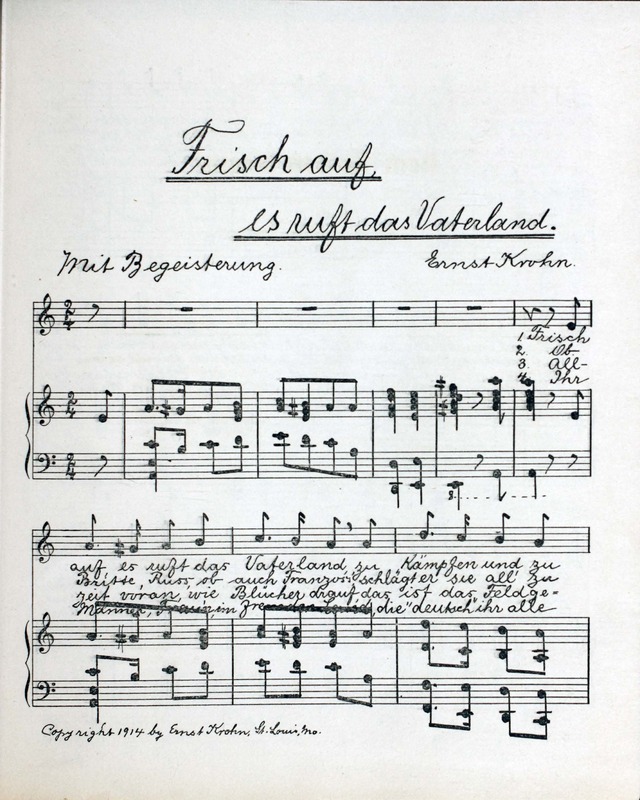 Frisch auf,
es ruft das Vaterland.
Mit Begeisterung.
Ernst Krohn.
1. Frisch
2. Ob
3. All-
4. Ihr
auf es ruft das Vaterland, zu Kämpfen und zu
Britte, Russ, ob auch Franzos; schlägt er sie all' zu
zeit voran, wie Blücher drauf das ist das Feldge-
Männer, Frau'n, in "die "deutsch" ihr alle
8.
Copyright 1914 by Ernst Krohn, St. Louis, Mo.